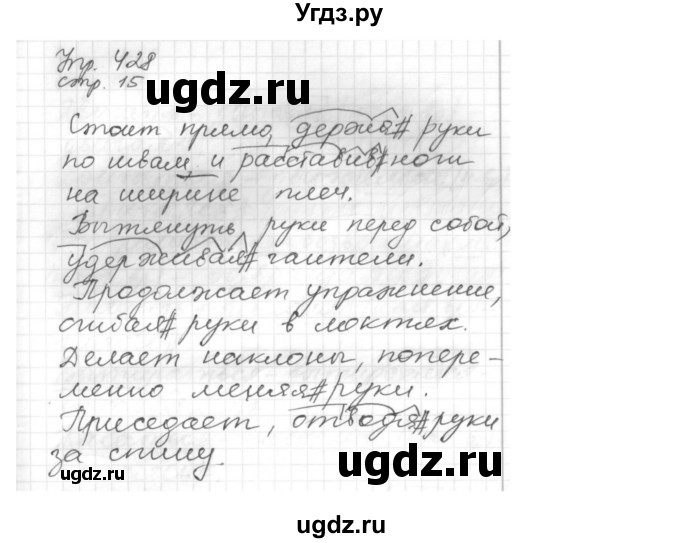 Угдз.ру
Упр. 428
стр. 15
ugdz.ru
Стоит прямо, держа# руки
по швам, и расставив# ноги
на ширине плеч.
Вытянуть руки перед собой,
удерживая# гантели.
Продолжает упражнение,
сгибая# руки в локтях.
Делает наклоны, попере-
менно меняя# руки.
Приседает, отводя# руки
за спину.
ugdz.ru
ugdz.ru
ugdz.ru